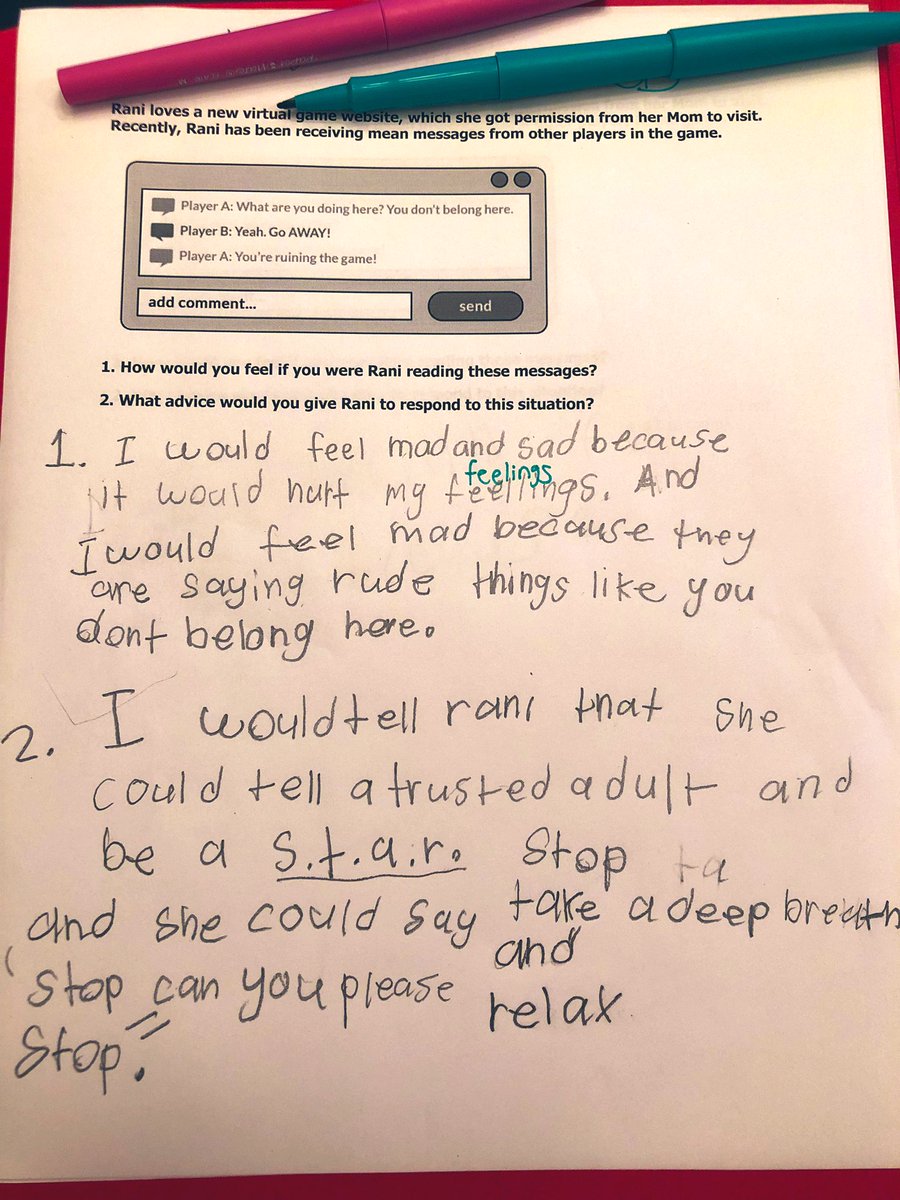 Rani loves a new virtual game website, which she got permission from her Mom to visit.
Recently, Rani has been receiving mean messages from other players in the game.
Player A: What are you doing here? You don't belong here.
Player B: Yeah. Go AWAY!
Player A: You're ruining the game!
add comment...
send
1. How would you feel if you were Rani reading these messages?
2. What advice would you give Rani to respond to this situation?
1. I would feel mad and sad because
feelings
it would hurt my feellings. And
I would feel mad because they
are saying rude things like you
dont belong here.
2. I would tell rani that she
could tell a trusted adult and
be a s.t.a.r. Stop ta
take a deep breath
and
relax
and she could say
"stop can you please
Stop."